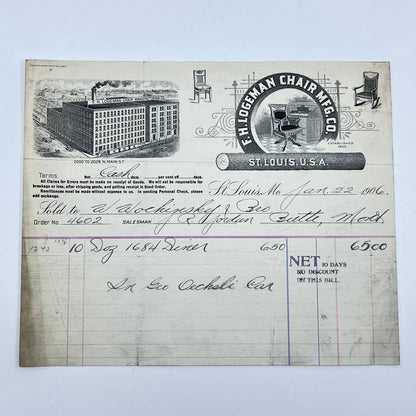 F. H. LOGEMAN CHAIR MFG. CO.
ESTABLISHED
ST. LOUIS, U.S.A.
2000 TO 2028 N. MAIN ST.
Terms Net Cash days, per cent off days.
All Claims for Errors must be made on receipt of Goods. We will not be responsible for
breakage or loss, after shipping goods, and getting receipt in Good Order.
Remittances must be made without expense to us. In sending Personal Check, please
add exchange.
St. Louis, Mo. Jan. 22 1906.
Sold to & Bro
Order No 4602 SALESMAN Jordan Butte, Mont
10 Doz 1684 Diner 650 6500
NET 10 DAYS
NO DISCOUNT
ON THIS BILL
In Geo Car